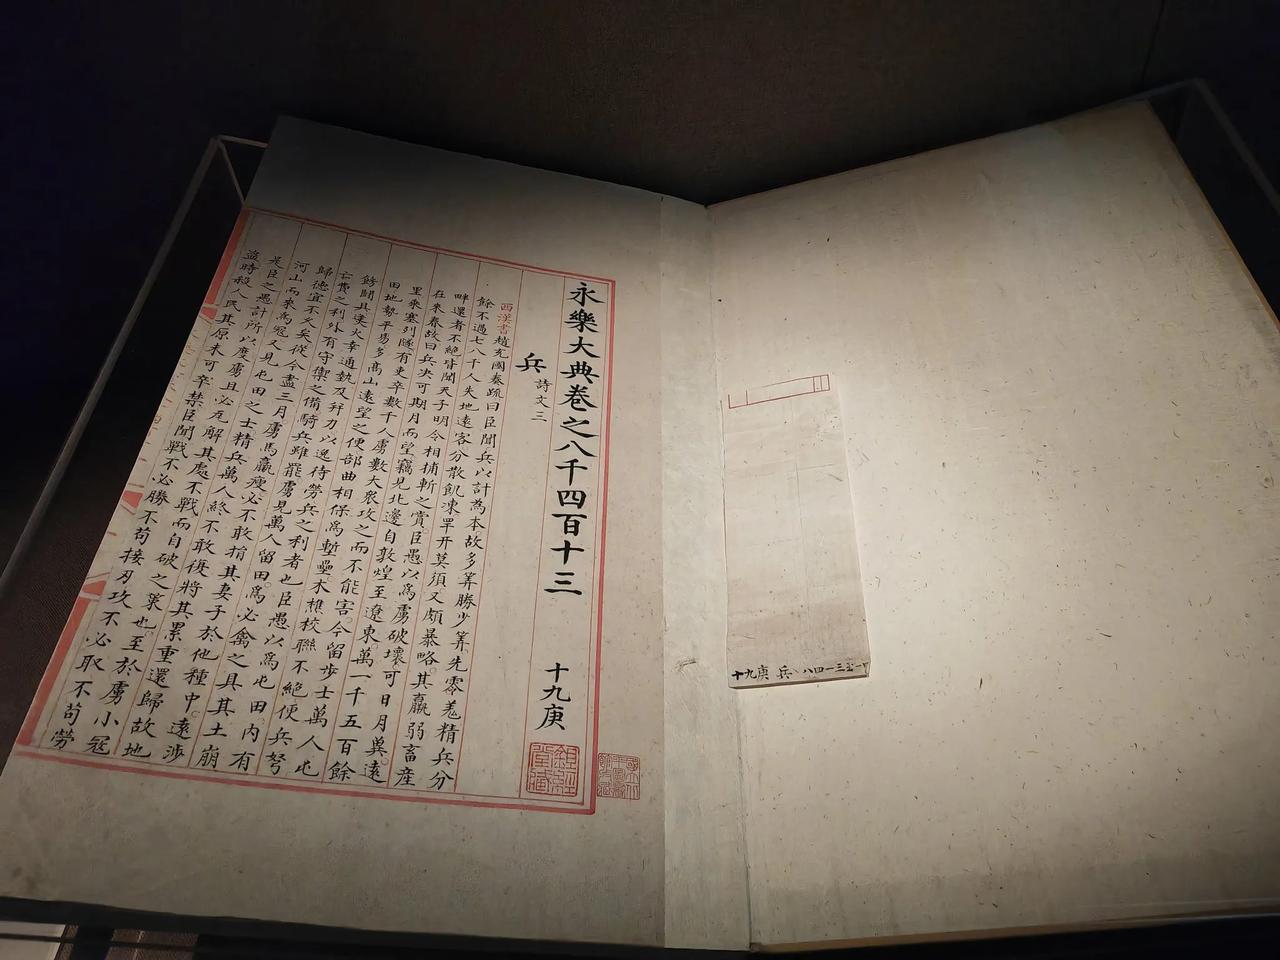 永樂大典卷之八千四百十三 十九庚
兵 詩文三
西漢書趙充國奏疏曰臣聞兵以計為本故多筭勝少筭先零羌精兵分
餘不過七八千人失地遠客分散飢凍罕开莫須又頗暴略其羸弱畜産
畔還者不絶皆聞天子明令相捕斬之賞臣愚以爲虜破壞可日月兾遠
在來春故曰兵决可期月而望竊見北邊自敦煌至遼東萬一千五百餘
里乘塞列隧有吏卒數千人虜數大衆攻之而不能害今留步士萬人屯
田地勢平易多高山遠望之便部曲相保爲塹壘木樵校聮不絶便兵弩
飭鬭具㷭火幸通埶及并力以逸待勞兵之利者也臣愚以爲屯田内有
亡費之利外有守禦之備騎兵雖罷虜見萬人留田爲必禽之具其土崩
歸德宜不久矣從今盡三月虜馬羸瘦必不敢捐其妻子於他種中遠涉
河山而來爲冦又見屯田之士精兵萬人終不敢復將其累重還歸故地
是臣之愚計所以度虜且必瓦解其處不戰而自破之策也至於虜小冦
盗時殺人民其原未可卒禁臣聞戰不必勝不苟接刃攻不必取不苟勞
鉏經堂藏
十九庚 兵 八四一三